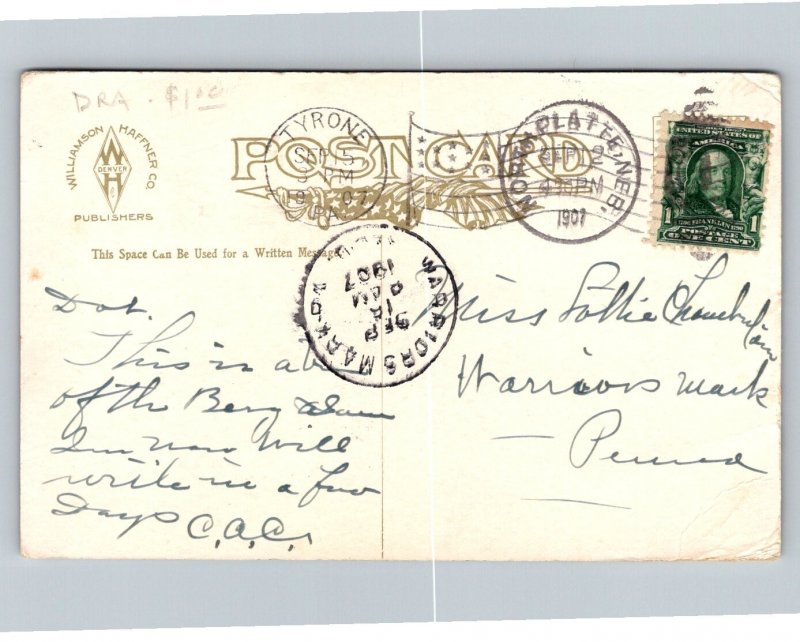 DRA - $1.00
WILLIAMSON HAFFNER CO.
DENVER
W H
PUBLISHERS
POST CARD
TYRONE
SEP 15
PM
PA.
NORTH PLATTE, NEB.
SEP 12
4-30 PM
1907
UNITED STATES OF
AMERICA
1 FRANKLIN 1
POSTAGE
ONE CENT
This Space Can Be Used for a Written Message
WARRIORS MARK PA
SEP
1
AM
1907
REC'D
Dot.
This is a
of the
Im now Will
write in a few
Days C.A.C.
Miss Lottie Chamberlain
Warriors Mark
Penna